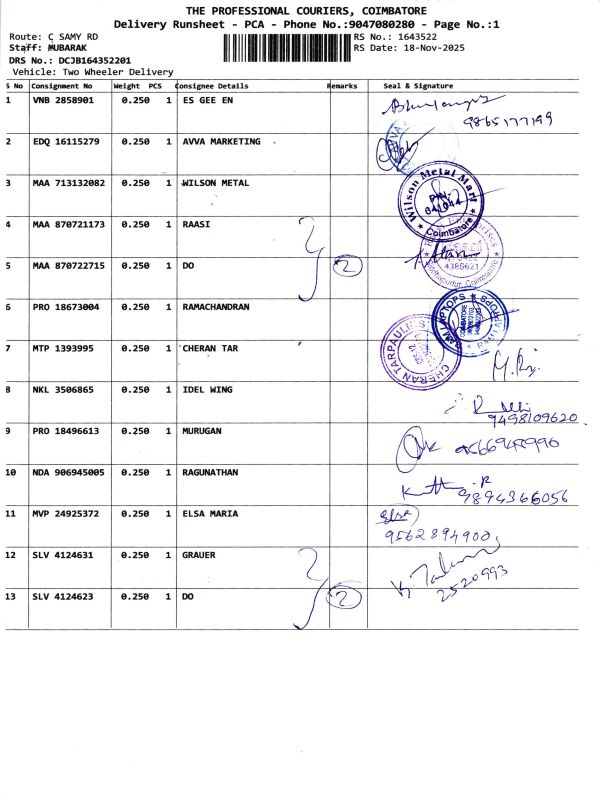 THE PROFESSIONAL COURIERS, COIMBATORE
Delivery Runsheet - PCA - Phone No.:9047080280 - Page No.:1
Route: C SAMY RD RS No.: 1643522
Staff: MUBARAK RS Date: 18-Nov-2025
DRS No.: DCJB164352201
Vehicle: Two Wheeler Delivery
S No Consignment No Weight PCS Consignee Details Remarks Seal & Signature
1 VNB 2858901 0.250 1 ES GEE EN
9865177199
2 EDQ 16115279 0.250 1 AVVA MARKETING
3 MAA 713132082 0.250 1 WILSON METAL
Wilson Metal Mart
PIN-
641044
Coimbatore
4 MAA 870721173 0.250 1 RAASI
5 MAA 870722715 0.250 1 DO 2
4386621
6 PRO 18673004 0.250 1 RAMACHANDRAN
7 MTP 1393995 0.250 1 CHERAN TAR
CHERAN TARPAULINS
8 NKL 3506865 0.250 1 IDEL WING
9498109620
9 PRO 18496613 0.250 1 MURUGAN
9566948990
10 NDA 906945005 0.250 1 RAGUNATHAN
9894366056
11 MVP 24925372 0.250 1 ELSA MARIA
Elsa
9562894900
12 SLV 4124631 0.250 1 GRAUER
13 SLV 4124623 0.250 1 DO 2
2520993